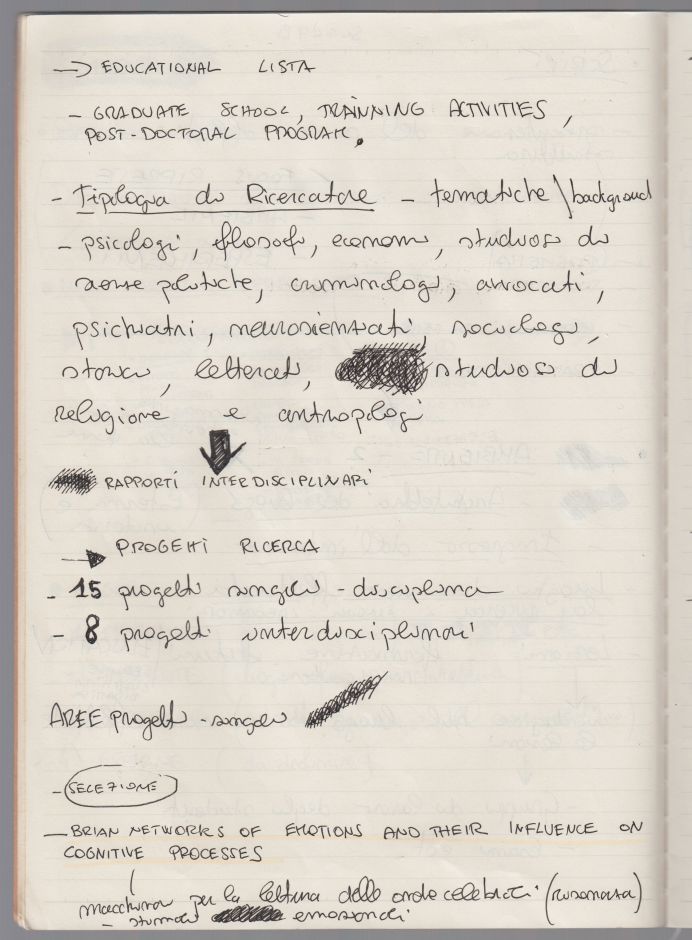 → EDUCATIONAL LISTA
- GRADUATE SCHOOL, TRAINNING ACTIVITIES,
POST-DOCTORAL PROGRAM.
- Tipologia di Ricercatore - tematiche \ background
- psicologi, filosofi, economi, studiosi di
scienze politiche, criminologi, avvocati,
psichiatri, neuroscienziati, sociologi,
storici, letterati, studiosi di
religione e antropologi
RAPPORTI INTERDISCIPLINARI
→ PROGETTI RICERCA
- 15 progetti singoli - disciplina
- 8 progetti interdisciplinari
AREE progetti - singoli
- SELEZIONE
- BRIAN NETWORKS OF EMOTIONS AND THEIR INFLUENCE ON
COGNITIVE PROCESSES
macchinari per la lettura delle onde celebrali (risonanza)
- stimoli emozionali